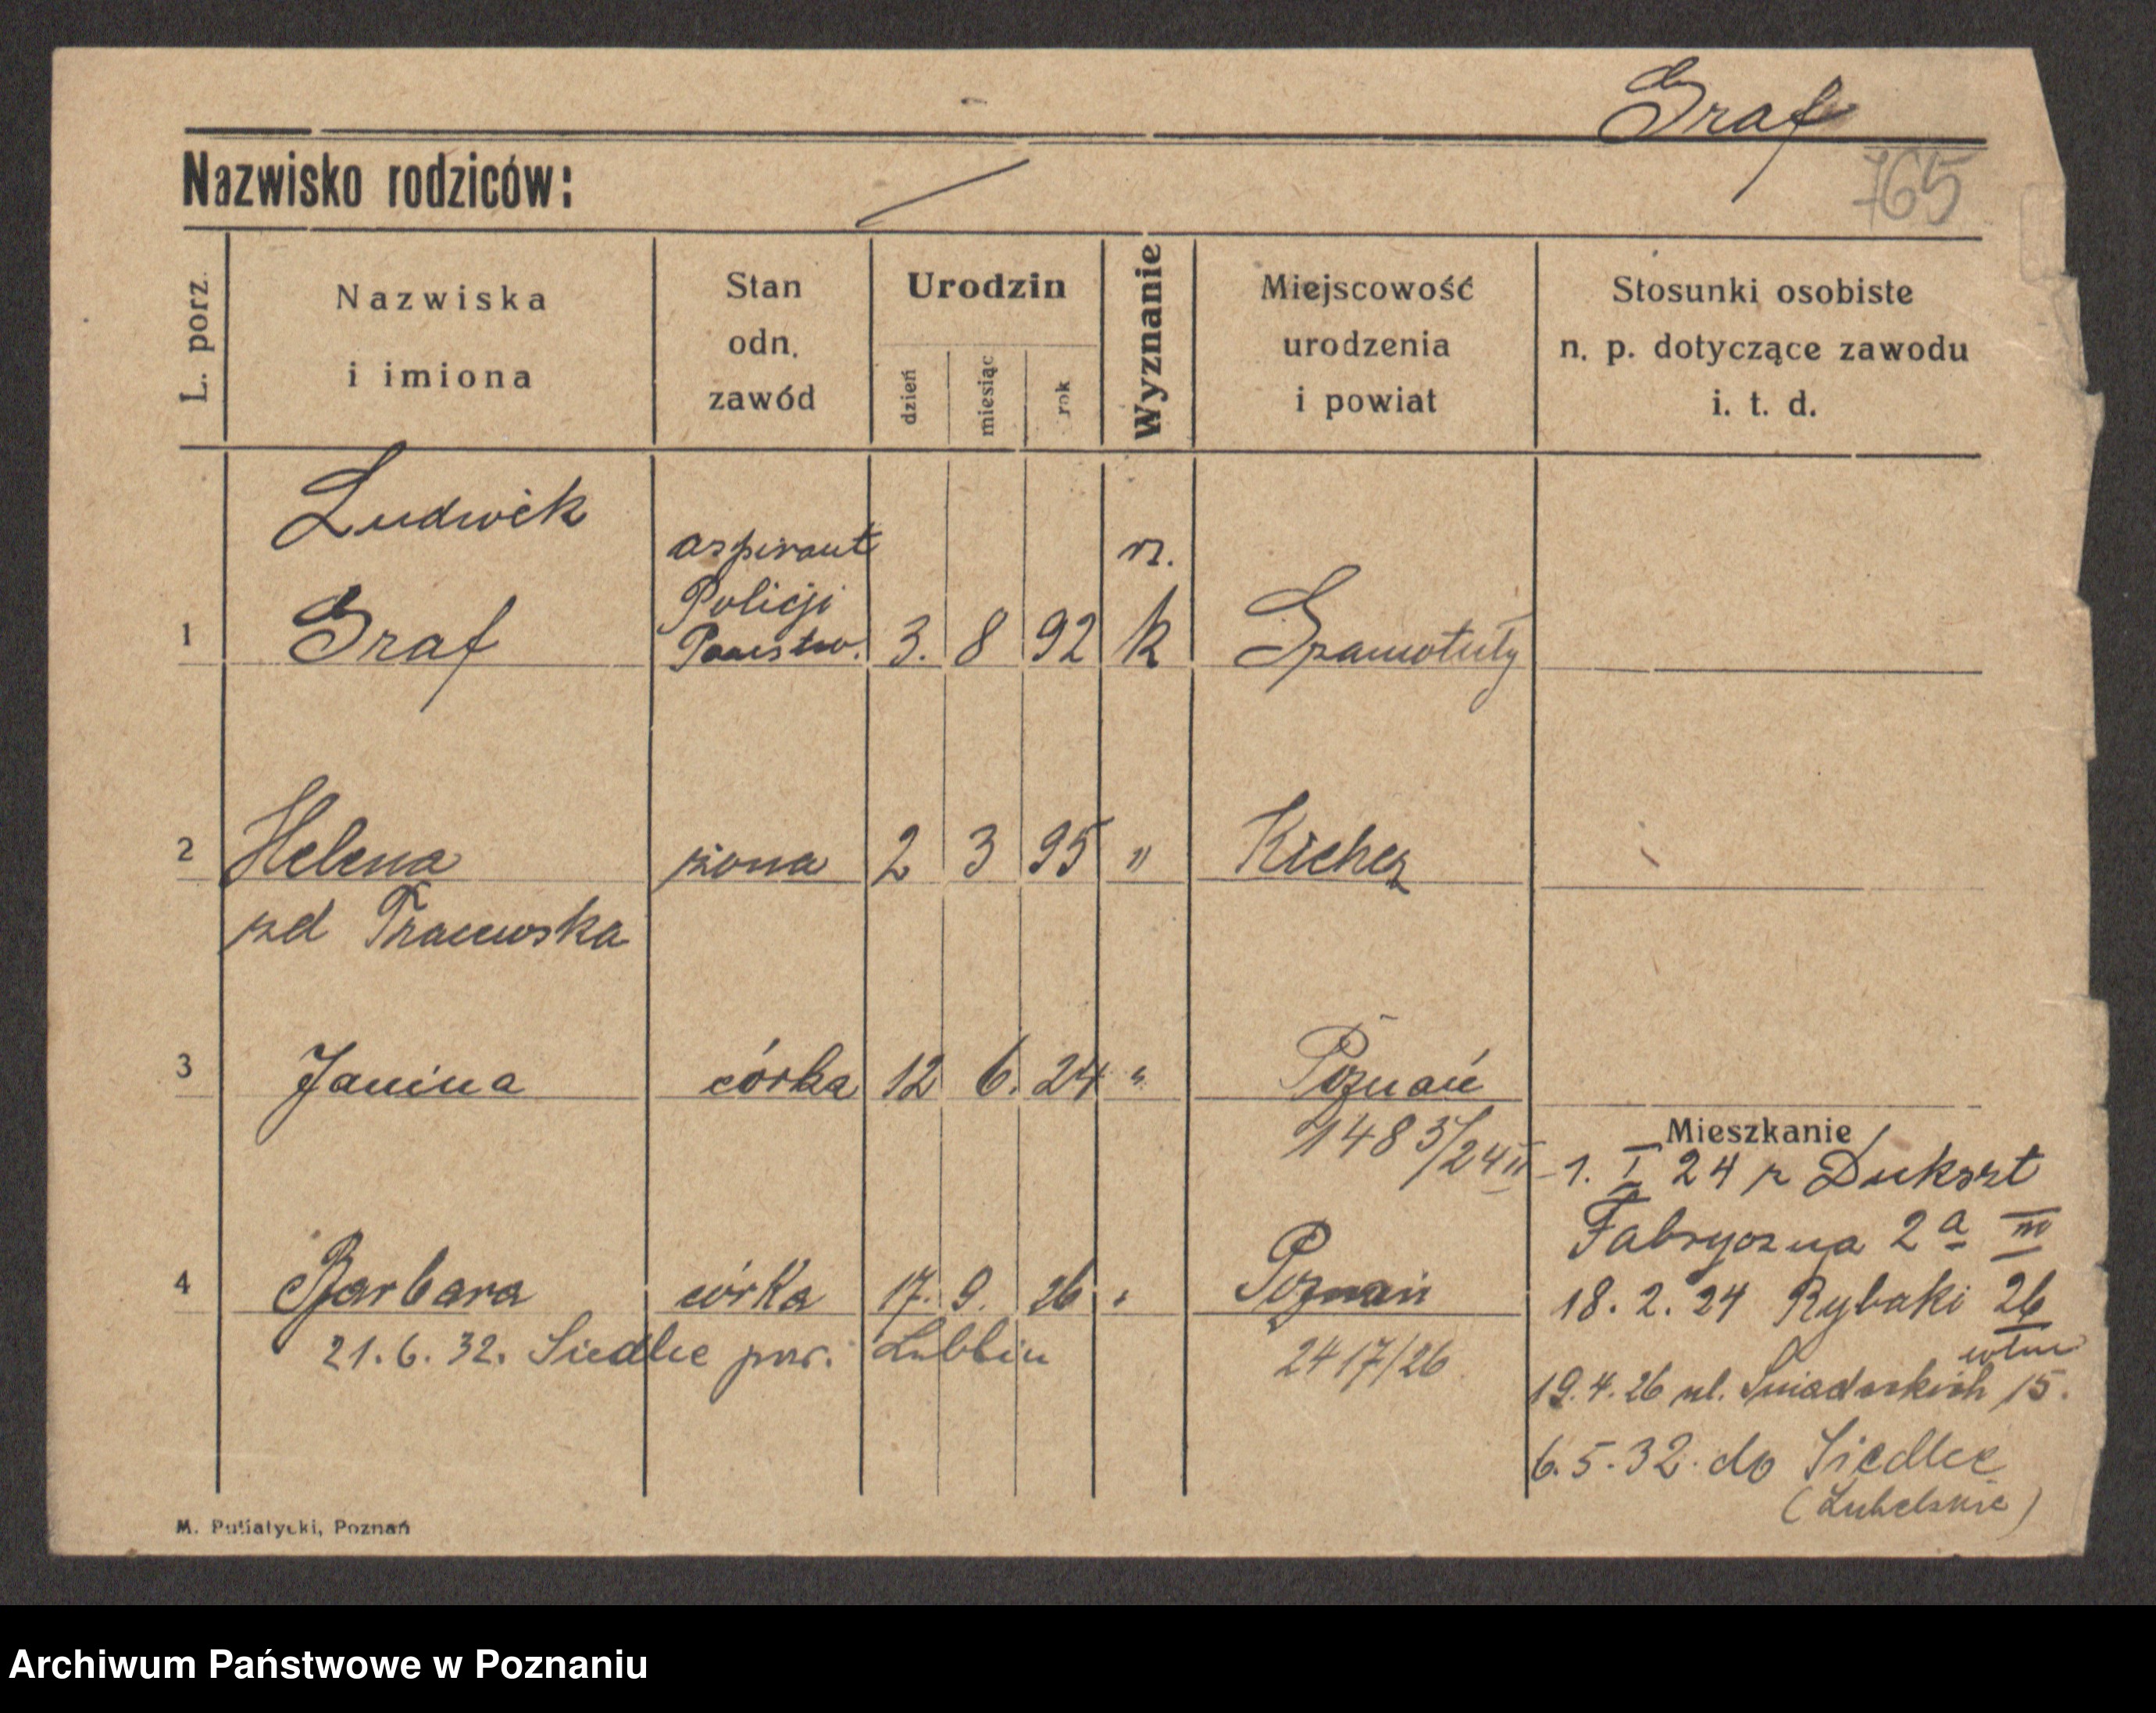 Graf
Nazwisko rodziców:
765
L. porz.
Nazwiska
i imiona
Stan
odn.
zawód
Urodzin
dzień
miesiąc
rok
Wyznanie
Miejscowość
urodzenia
i powiat
Stosunki osobiste
n. p. dotyczące zawodu
i. t. d.
Ludwik
aspirant
rz.
Policji
1 Graf Państw. 3. 8 92 k Szamotuły
2 Helena żona 2 3 95 "
zd
3 Janina córka 12 6. 24 " Poznań
1483/24 II
Mieszkanie
1. I 24 z Dukszt
Fabryczna 2a III
4 Barbara córka 17. 9. 26 " Poznań
18. 2. 24 Rybaki 26
21. 6. 32. Siedlce pow. Lublin
2417/26
19. 4. 26 ul. Śniadeckich 15.
6. 5. 32. do Siedlec
(Lubelskie)
M. Putiatycki, Poznań
Archiwum Państwowe w Poznaniu